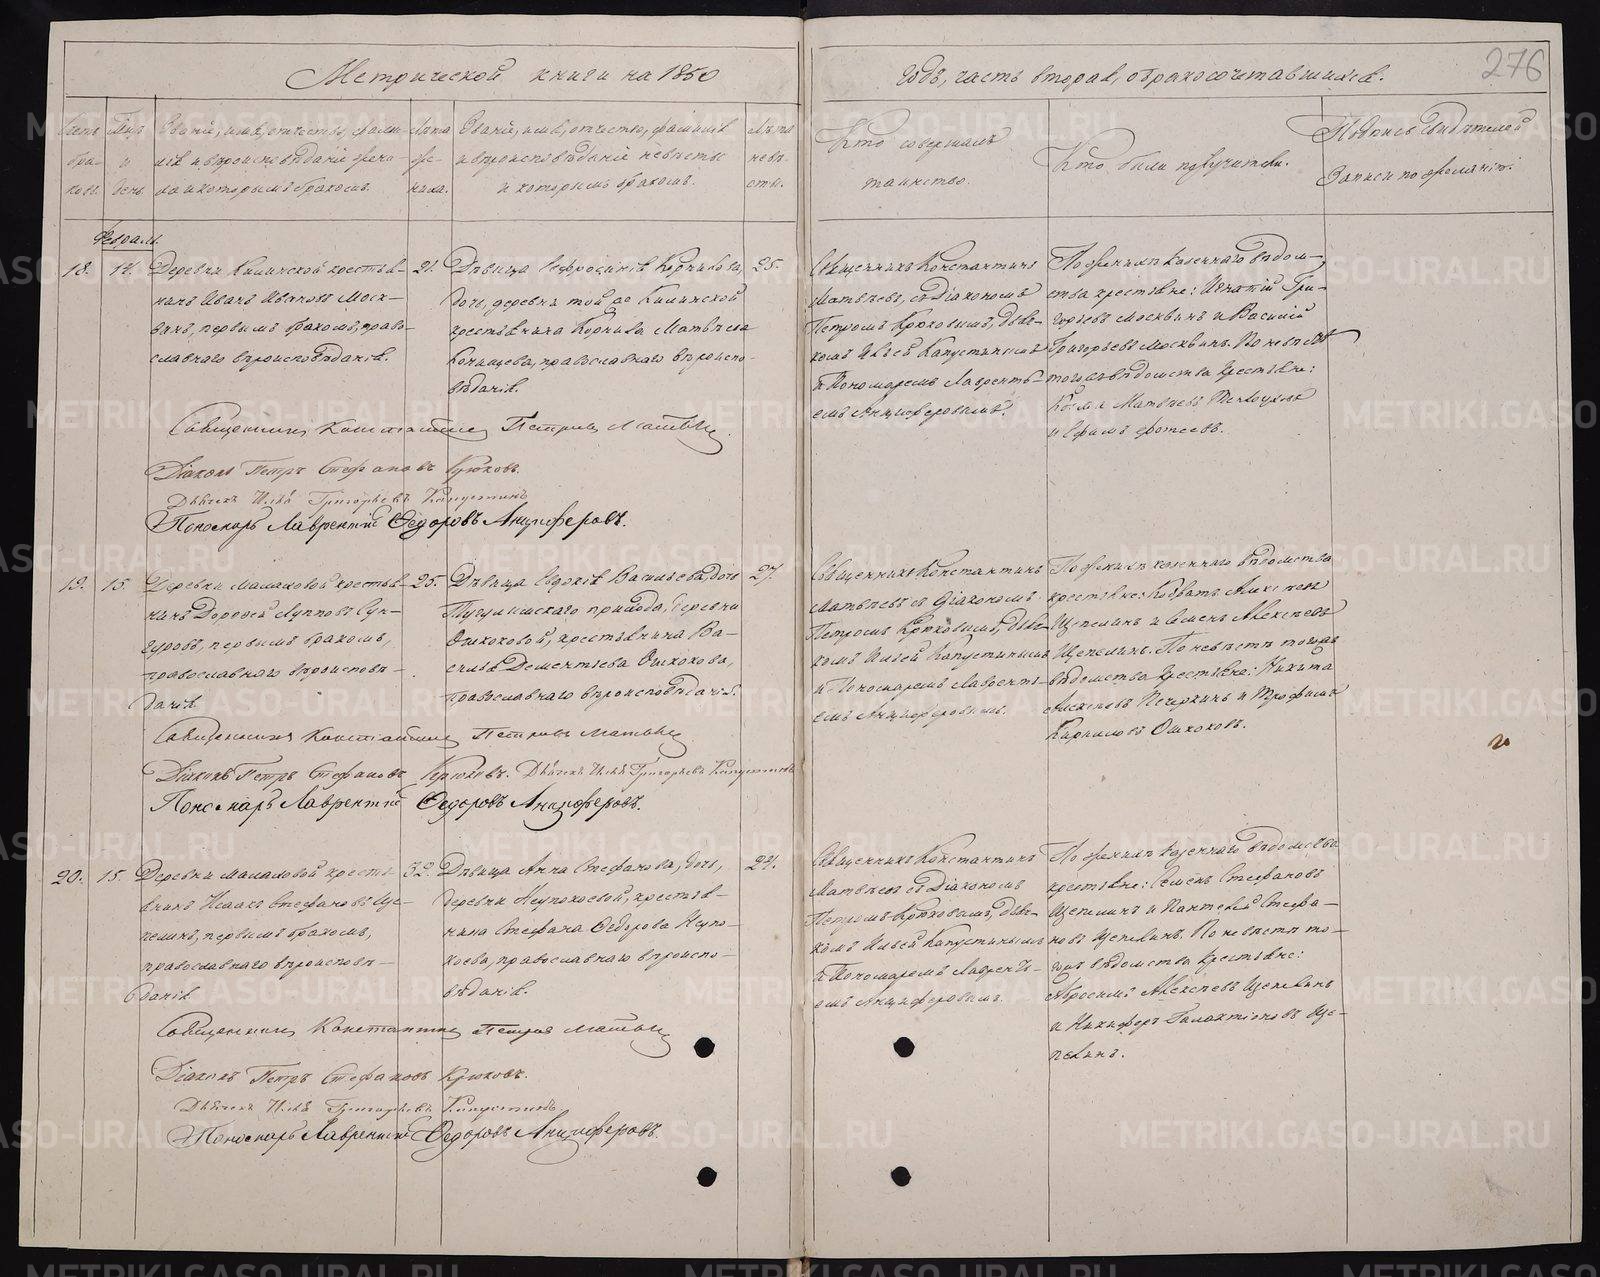 Метрической книги на 1850
годъ, часть вторая, о бракосочетавшихся.
276
Званіе, имя, отчество, фами-
лія и вѣроисповѣданіе жени-
ха и которымъ бракомъ.
Лѣта
же-
ниха.
Званіе, имя, отчество, фамилія
и вѣроисповѣданіе невѣсты
и которымъ бракомъ.
Лѣта
невѣ-
сты.
Кто совершалъ
таинство.
Кто были поручители.
Подпись свидѣтелей
записи по желанію.
Февраль.
18.
14.
Деревни Калинской крестья-
нинъ Иванъ Ивановъ Моск-
винъ, первымъ бракомъ, право-
славнаго вѣроисповѣданія.
21.
Дѣвица Евфросинія Корнилова,
дочь, деревни той же Калинской
крестьянина Корнила Матвѣева
православнаго вѣроиспо-
вѣданія.
25.
Священникъ Константинъ
Матвѣевъ, съ Діакономъ
Петромъ Крюковымъ, дьяч-
комъ Ильей Капустинымъ
и Пономаремъ Лавренть-
емъ Анциферовымъ.
По женихѣ казеннаго вѣдом-
ства крестьяне: Игнатій Гри-
горьевъ Москвинъ и Василій
Григорьевъ Москвинъ. По невѣстѣ
того жъ вѣдомства крестьяне:
Козма Матвѣевъ
и Ефимъ
Священникъ Константинъ Петровъ Матвѣевъ
Діаконъ Петръ Стефановъ Крюковъ.
Дьячекъ Илья Григорьевъ Капустинъ
Пономарь Лаврентій Ѳедоровъ Анциферовъ.
19.
15.
Деревни Малаховой крестья-
нинъ Дороѳей Лупповъ Сун-
гуровъ, первымъ бракомъ,
православнаго вѣроисповѣ-
данія.
25.
Дѣвица Евдокія Васильева, дочь
Тугулымскаго прихода, деревни
Ошкуковой, крестьянина Ва-
силья Дементьева Ошкокова,
православнаго вѣроисповѣданія.
27.
Священникъ Константинъ
Матвѣевъ съ Діакономъ
Петромъ Крюковымъ, дьяч-
комъ Ильей Капустинымъ
и Пономаремъ Лавренть-
емъ Анциферовымъ.
По женихѣ казеннаго вѣдомства
крестьяне: Кодратъ Алексѣевъ
Щепелинъ и Семенъ Алексѣевъ
Щепелинъ. По невѣстѣ тогожъ
вѣдомства крестьяне: Никита
Алексѣевъ Печеркинъ и Трофимъ
Карниловъ Ошкоковъ.
Священникъ Константинъ Петровъ Матвѣевъ
Діаконъ Петръ Стефановъ Крюковъ. Дьячекъ Илья Григорьевъ Капустинъ
Пономарь Лаврентій Ѳедоровъ Анциферовъ.
20.
15.
Деревни Малаховой кресть-
янинъ Исаакъ Стефановъ Ще-
пелинъ, первымъ бракомъ,
православнаго вѣроисповѣ-
данія
32.
Дѣвица Анна Стефанова, дочь,
деревни Неупокоевой, крестья-
нина Стефана Ѳедорова Неупо-
коева, православнаго вѣроиспо-
вѣданія.
24.
Священникъ Константинъ
Матвѣевъ съ Діакономъ
Петромъ Крюковымъ, дьяч-
комъ Ильей Капустинымъ
и Пономаремъ Лаврентъ-
емъ Анциферовымъ.
По женихѣ казеннаго вѣдомства
крестьяне: Семенъ Стефановъ
Щепелинъ и Пантелей Стефа-
новъ Щепелинъ. По невѣстѣ то-
гожъ вѣдомства крестьяне:
Абросимъ Алексѣевъ Щепелинъ
и Никифоръ Галактіоновъ Ще-
пелинъ.
Священникъ Константинъ Петровъ Матвѣевъ
Діаконъ Петръ Стефановъ Крюковъ.
Дьячекъ Илья Григорьевъ Капустинъ
Пономарь Лаврентій Ѳедоровъ Анциферовъ.
METRIKI.GASO-URAL.RU